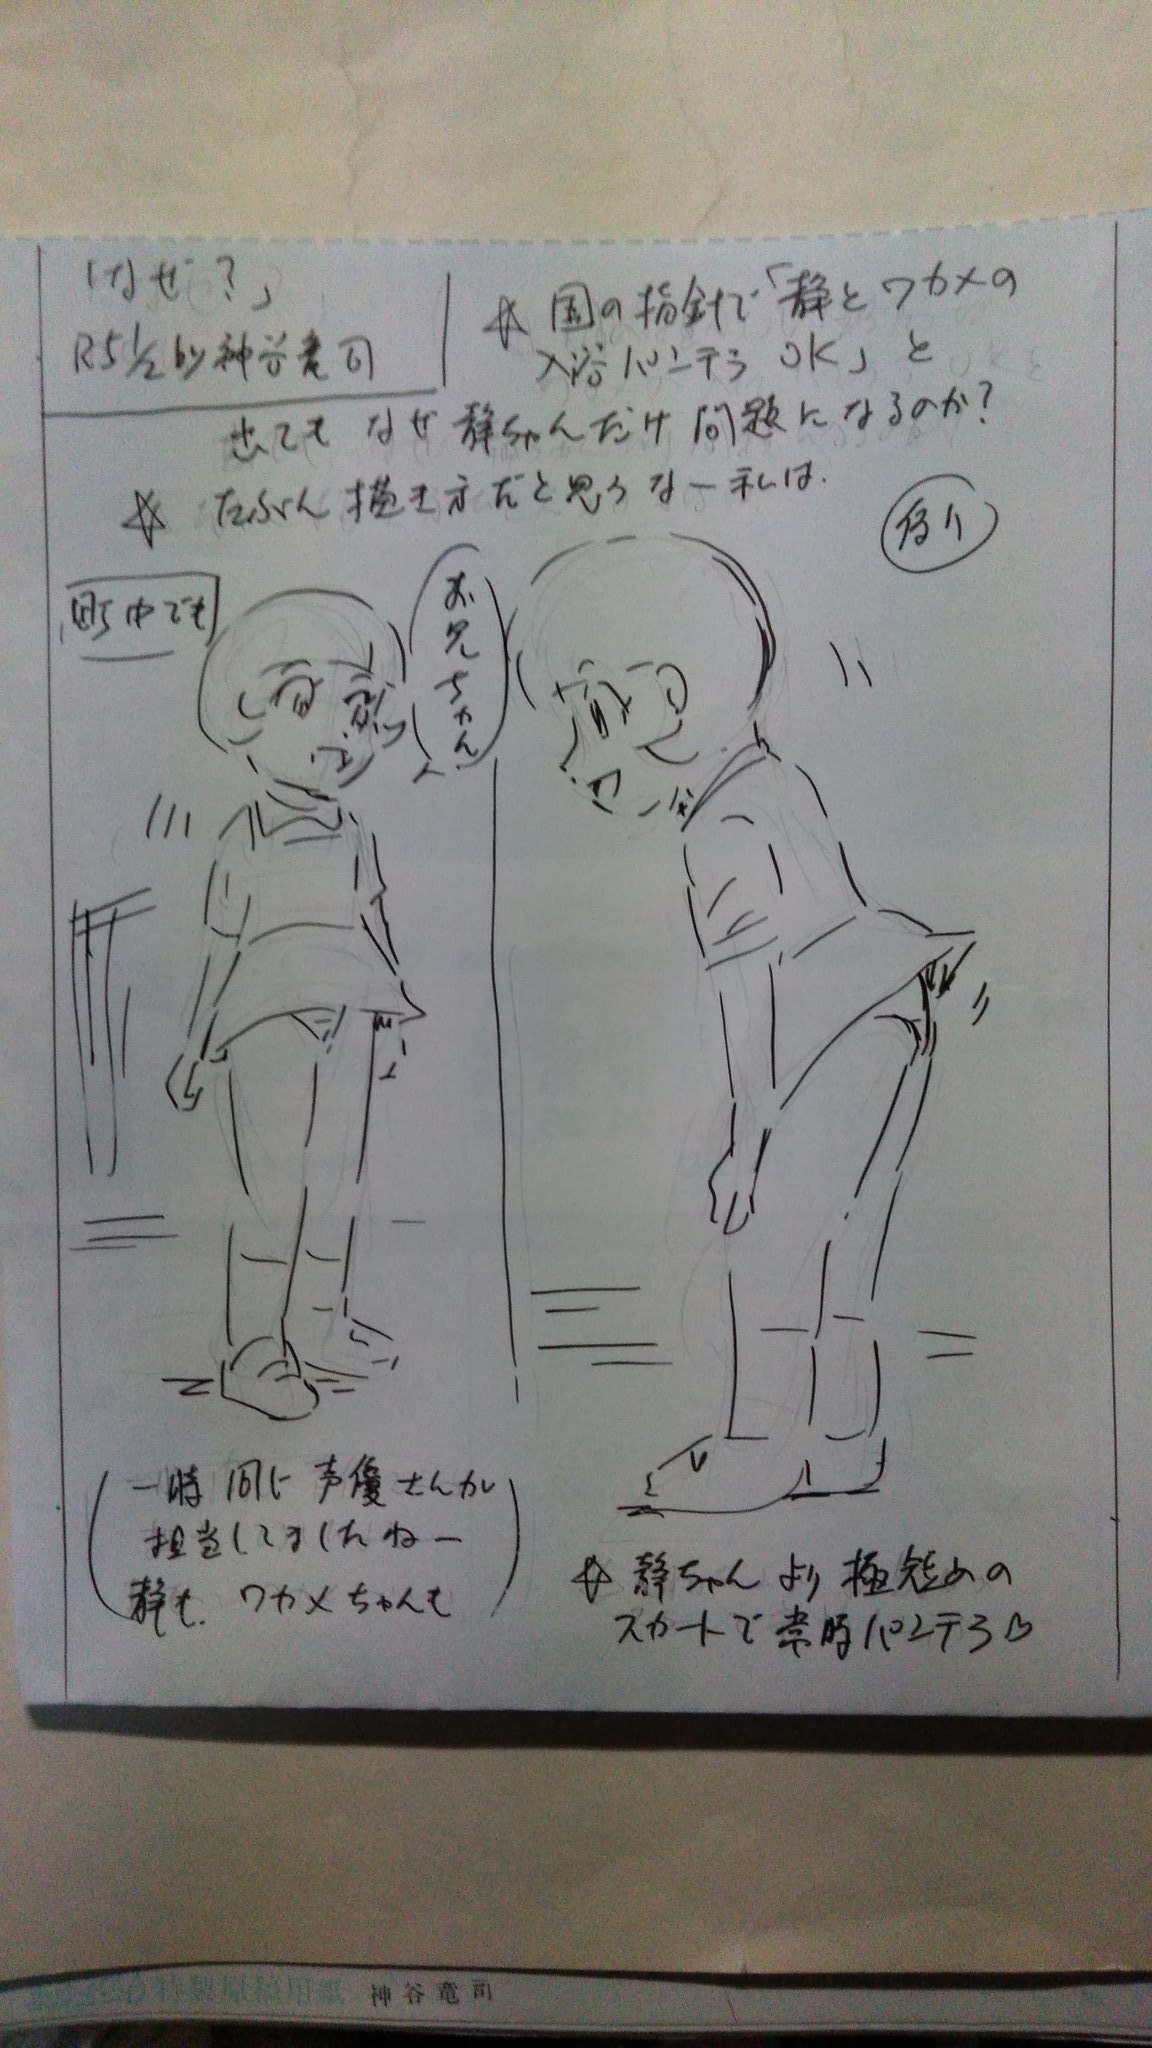 「なぜ?」
R5 1/2 by 神谷竜司
☆ 国の指針で「静とワカメの
入浴パンチラ OK」と
出ても なぜ静ちゃんだけ問題になるのか?
☆ たぶん描き方だと思うなー私は.
例り
町中でも
お兄ちゃん
(一時同じ声優さんが
担当してましたねー
静も. ワカメちゃんも)
☆ 静ちゃんより極短めの
スカートで常時パンチラ♡
特製原稿用紙 神谷竜司